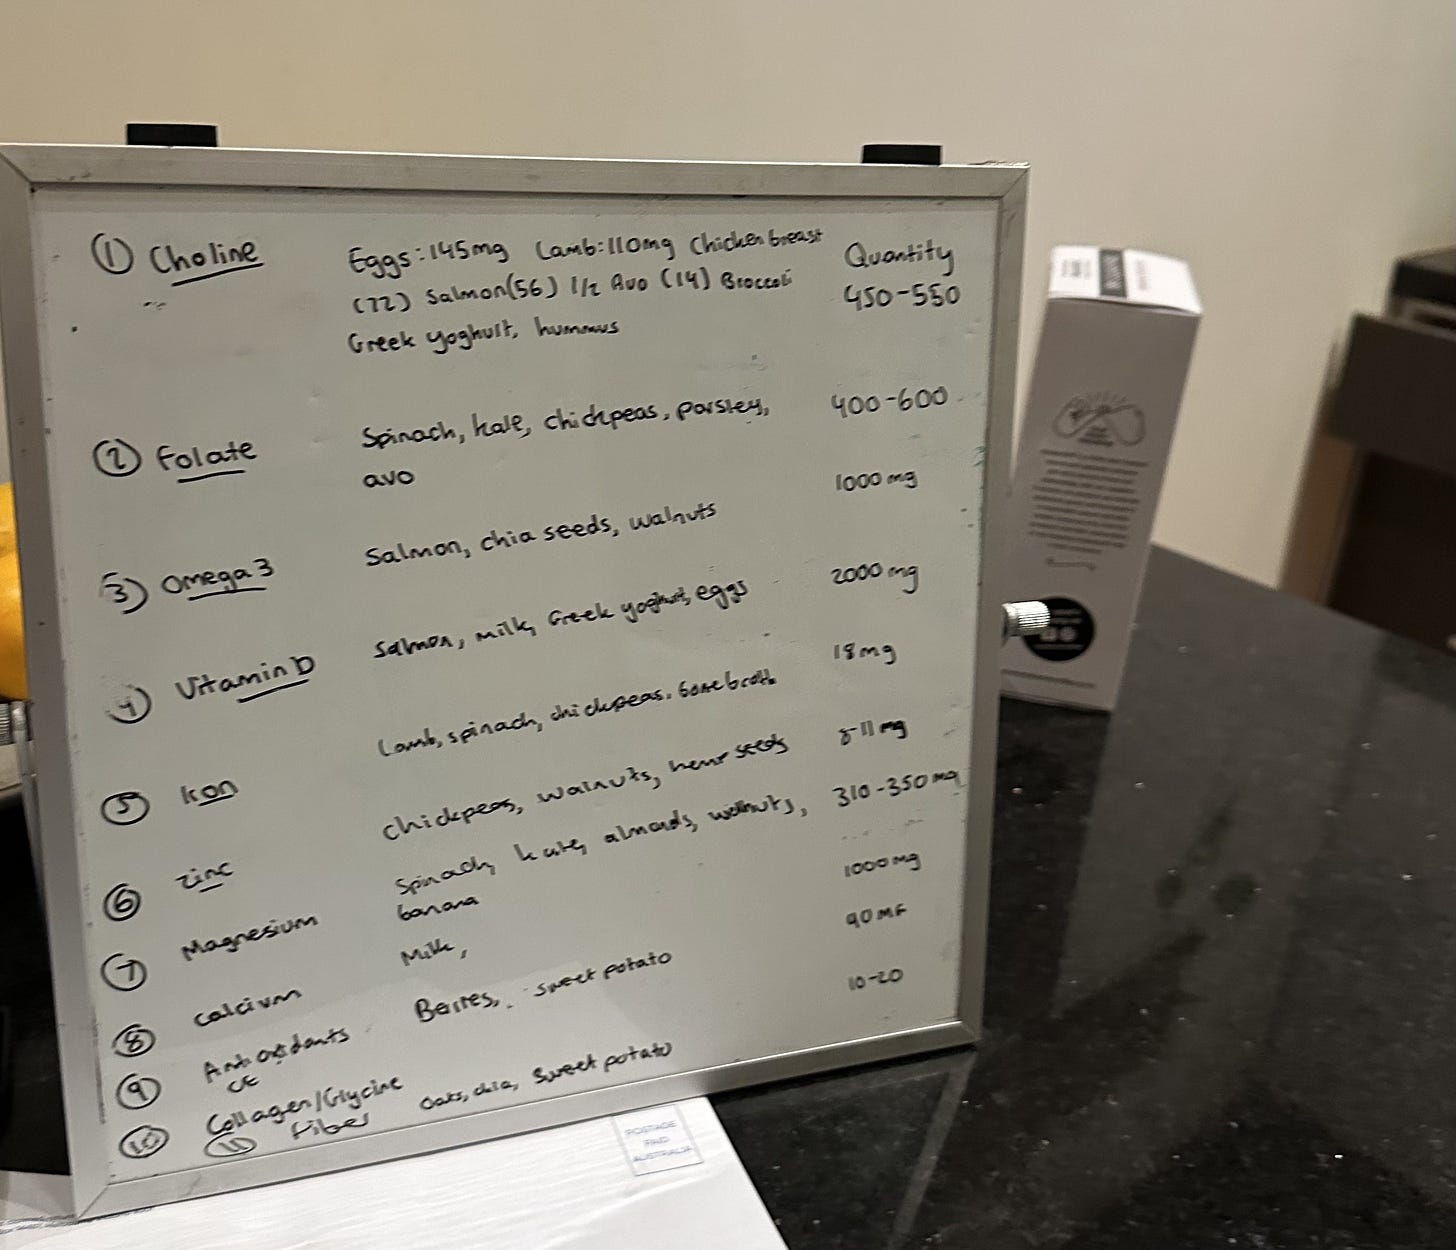 ① Choline Eggs:145mg Lamb:110mg Chicken breast Quantity
(72) Salmon(56) 1/2 Avo (14) Broccoli 450-550
Greek yoghult, hummus
② Folate Spinach, kale, chickpeas, parsley, 400-600
avo
③ Omega 3 Salmon, chia seeds, walnuts 1000 mg
④ Vitamin D Salmon, milk, Greek yoghurt, eggs 2000 mg
⑤ Iron Lamb, spinach, chickpeas, bone broth 18mg
⑥ Zinc Chickpeas, walnuts, hemp seeds 8-11 mg
⑦ Magnesium Spinach, kale, almonds, walnuts, 310-350 mg
banana
⑧ Calcium Milk, 1000mg
⑨ Antioxidants Berries, sweet potato 90
⑩ Collagen/Glycine 10-20
⑪ Fiber Oats, chia, Sweet potato
POSTAGE
PAID
AUSTRALIA